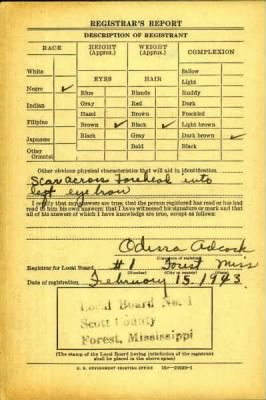 REGISTRAR'S REPORT
DESCRIPTION OF REGISTRANT
RACE HEIGHT (Approx.) WEIGHT (Approx.) COMPLEXION
EYES HAIR
White Sallow
Light
Negro ✓ Blue Blonde Ruddy
Gray Red Dark
Indian Hazel Brown Freckled
Filipino Brown ✓ Black ✓ Light brown
Japanese Black Gray Dark brown ✓
Other Oriental Bald Black
Other obvious physical characteristics that will aid in identification
Scar across forehead into
left eye brow
I certify that my answers are true; that the person registered has read or has had
read to him his own answers; that I have witnessed his signature or mark and that
all of his answers of which I have knowledge are true, except as follows:
Adcock
Registrar for Local Board #1 Forest Miss
(Number) (City or county) (State)
Date of registration February 15, 1943
Local Board No. 1
Scott County
Forest, Mississippi
(The stamp of the Local Board having jurisdiction of the registrant
shall be placed in the above space.)
U. S. GOVERNMENT PRINTING OFFICE